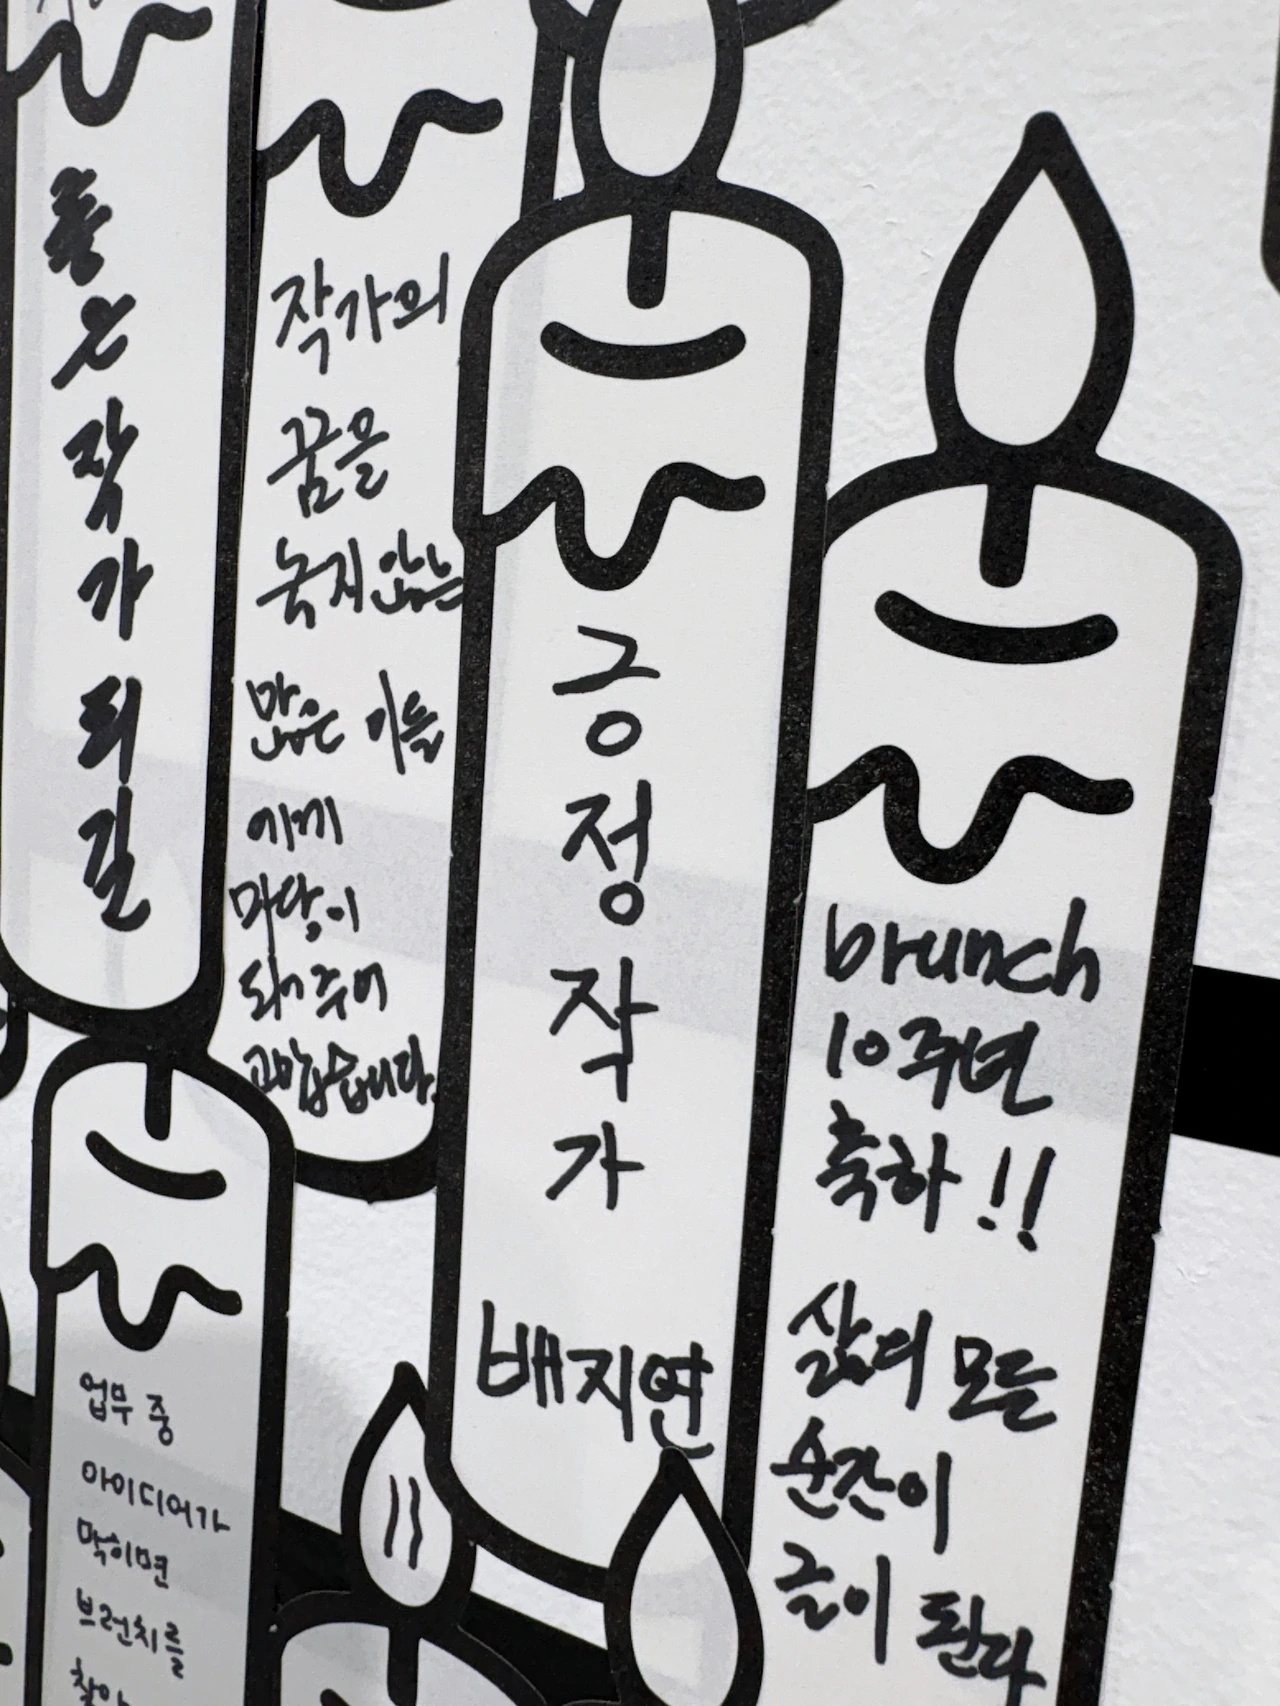 좋은
작가
되길
작가의
꿈을
놓지 않는
많은 이들
에게
마당이
되어주어
고맙습니다.
긍정작가
배지연
brunch
10주년
축하!!
삶의 모든
순간이
글이 된다
업무 중
아이디어가
막히면
브런치를